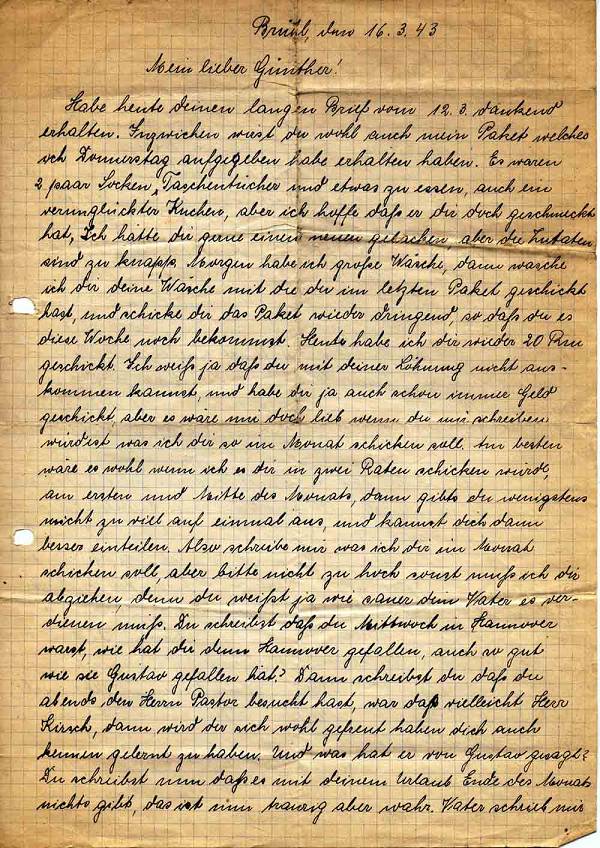 Brühl, den 16.3.43
Mein lieber Günther!
Habe heute deinen langen Brief vom 12.3. dankend
erhalten. Inzwichen wirst du wohl auch mein Paket welches
ich Donnerstag aufgegeben habe erhalten haben. Es waren
2 paar Socken, Taschentücher und etwas zu essen, auch ein
verunglückter Kuchen, aber ich hoffe daß er dir doch geschmeckt
hat, Ich hätte dir gerne einen neuen gebacken aber die Zutaten
sind zu knapp. Morgen habe ich große Wäsche, dann wasche
ich dir deine Wäsche mit die du im letzten Paket geschickt
hast, und schicke dir das Paket wieder dringend, so daß du es
diese Woche noch bekommst. Heute habe ich dir wieder 20 Rm
geschickt. Ich weiß ja daß du mit deiner Löhnung nicht aus-
kommen kannst, und habe dir ja auch schon immer Geld
geschickt, aber es wäre mir doch lieb wenn du mir schreiben
würdest was ich dir so im Monat schicken soll. Am besten
wäre es wohl wenn ich es dir in zwei Raten schicken würde,
am ersten und Mitte des Monats, dann gibts du wenigstens
nicht zu viel auf einmal aus, und kannst dich dann
besser einteilen. Also schreibe mir was ich dir im Monat
schicken soll, aber bitte nicht zu hoch sonst muß ich dir
abziehen, denn du weißt ja wie sauer dem Vater es ver-
dienen muß. Du schreibst daß du Mittwoch in Hannover
warst, wie hat dir denn Hannover gefallen, auch so gut
wie sie Gustav gefallen hat? Dann schreibst du daß du
abends den Herrn Pastor besucht hast, war daß vielleicht Herr
Kirsch, dann wird der sich wohl gefreut haben dich auch
kennen gelernt zu haben. Und was hat er von Gustav gesagt?
Du schreibst nun daß es mit deinem Urlaub Ende des Monats
nichts gibt, das ist nun traurig aber wahr. Vater schrieb mir